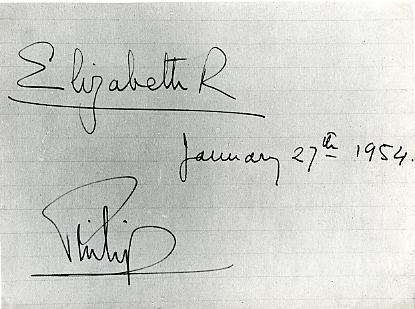 Elizabeth R
January 27th 1954.
Philip